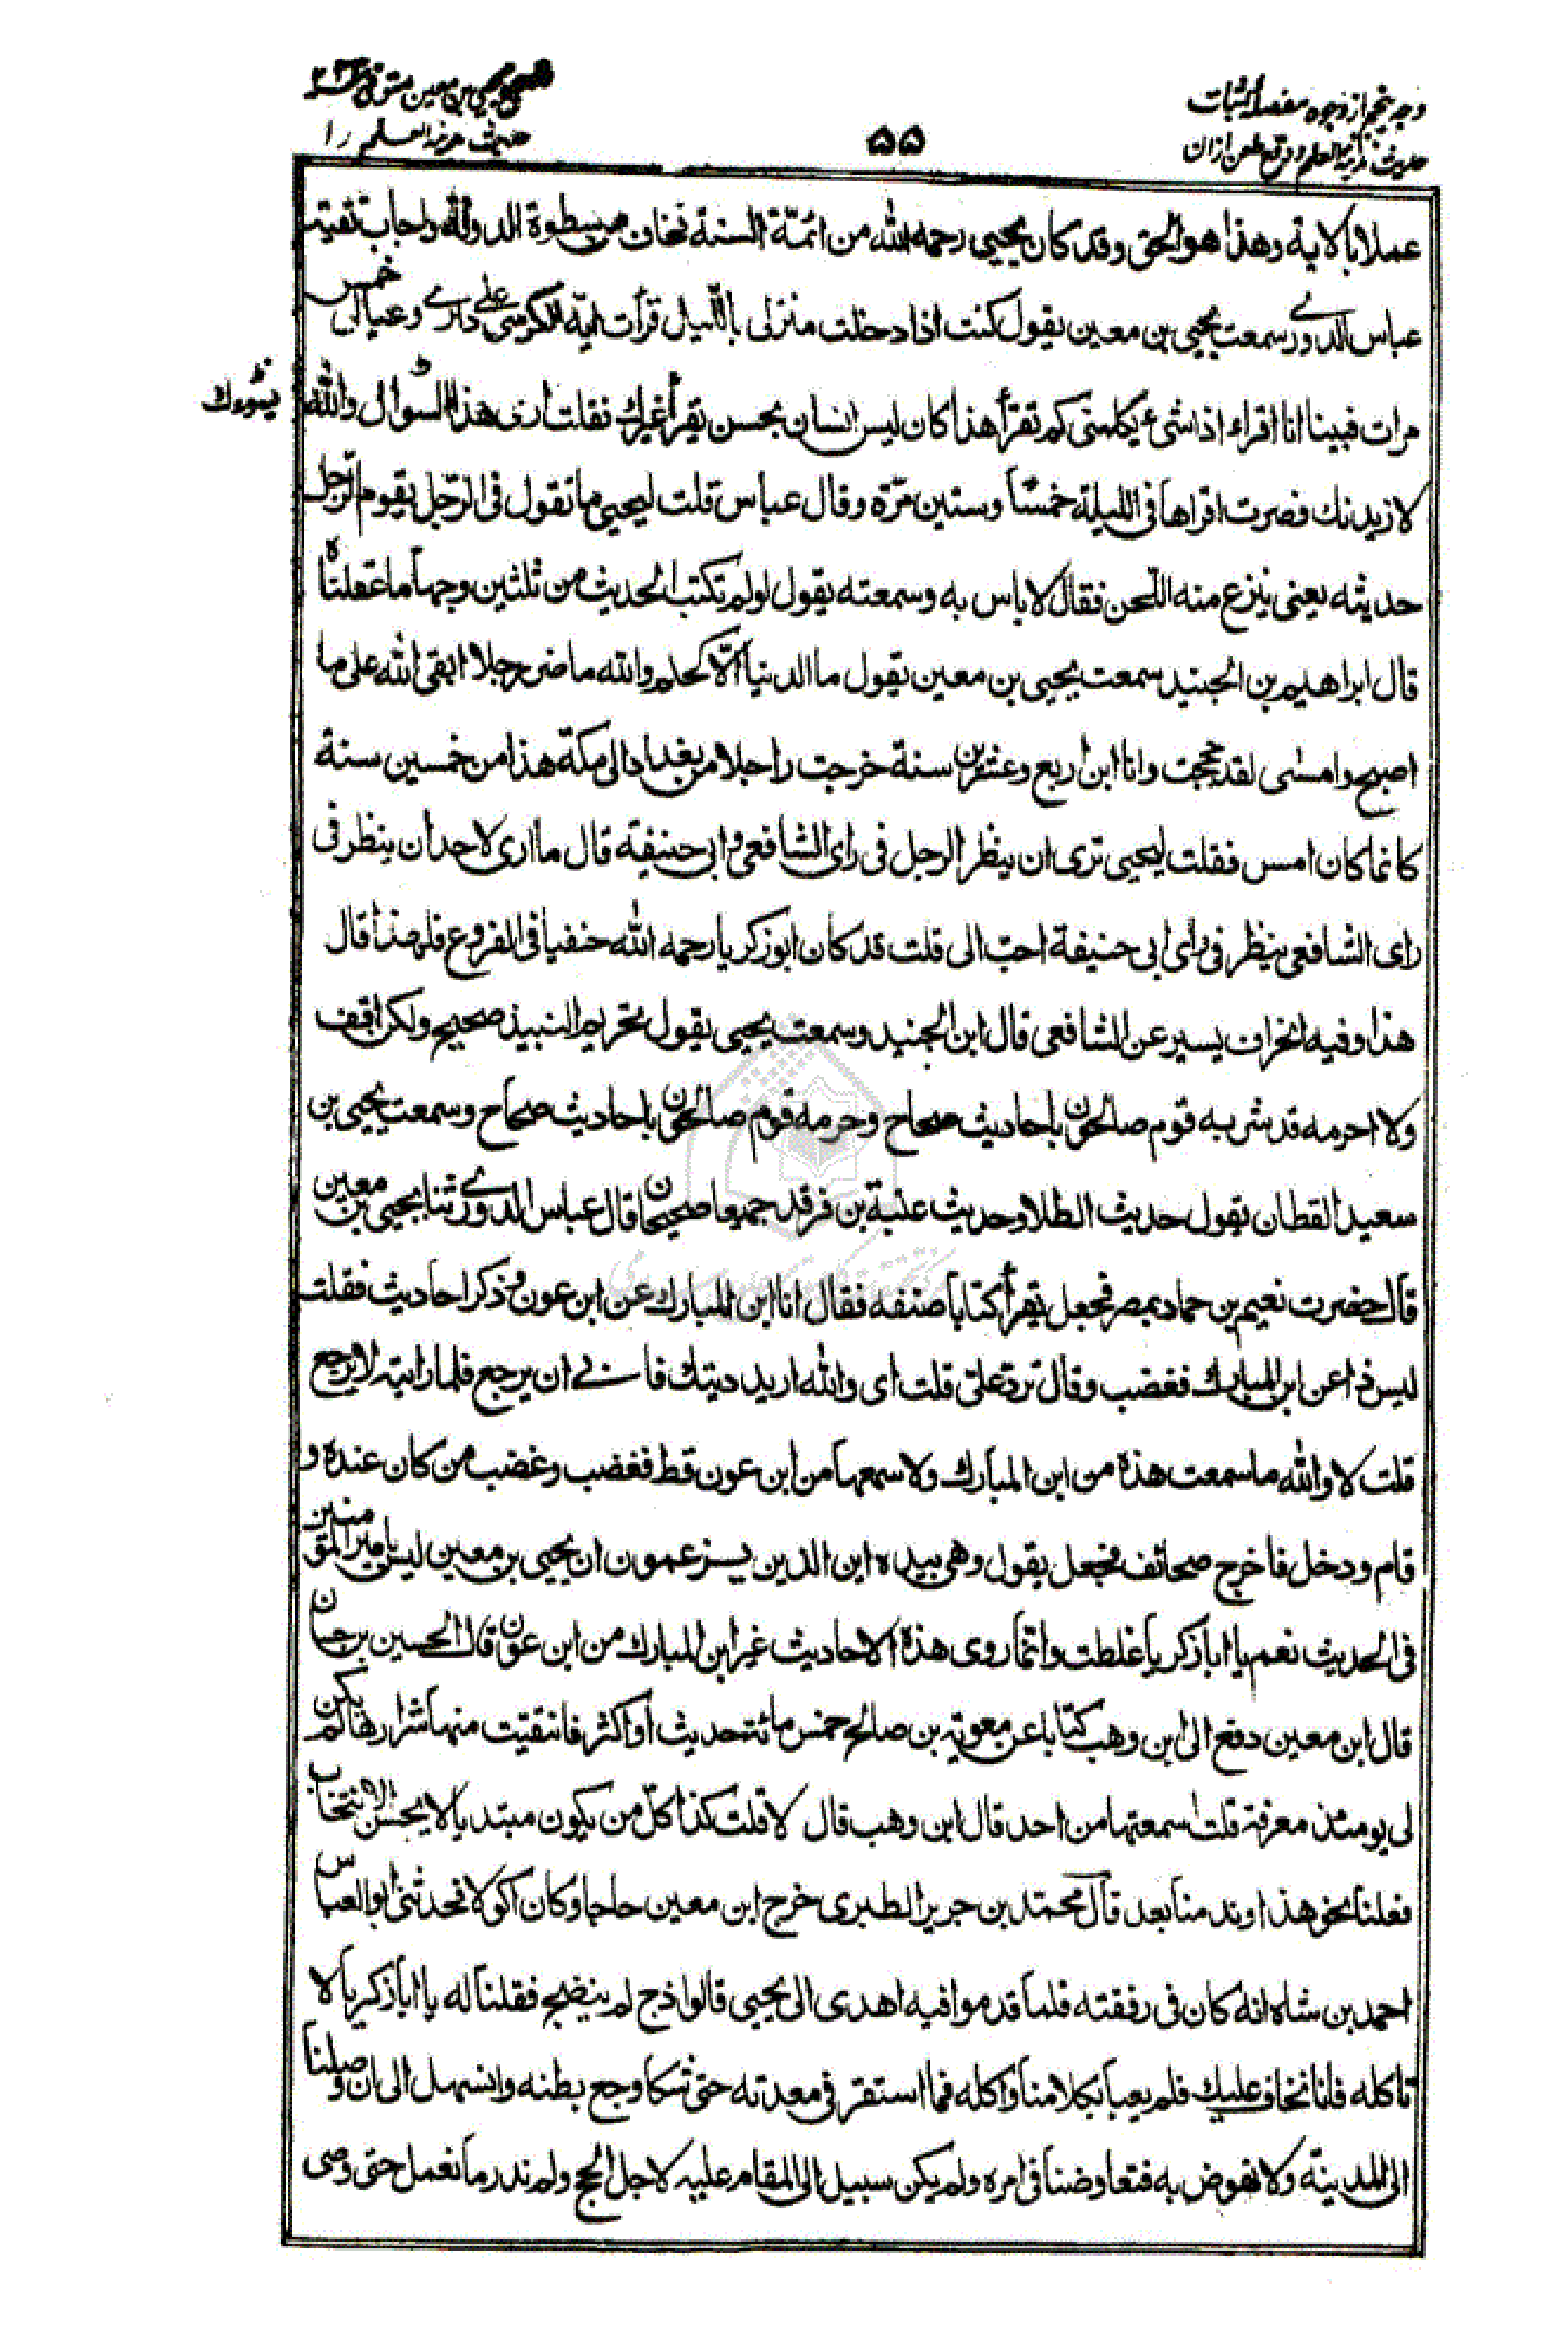 وجه پنجم از وجوه مفصله اثبات
حدیث مدینة العلم و دفع طعن ازان
۵۵
تصحیح یحیی بن معین متوفی
حدیث مدینة العلم را
عملا بالاية وهذا هو الحق وقد كان يحيى رحمه الله من ائمّة السنة فخاف من سطوة الدولة واجاب تقيّة
عباس الدوري سمعت يحيى بن معين يقول كنت اذا دخلت منزلى بالليل قرأت اية الكرسى على داري وعيالى خمس
مرات فبينا انا اقراء اذا شئ يكلمنى كم تقرأ هذا كان ليس انسان يحسن يقرأ غيرك فقلت ارى هذا يسوءك والله
لازيدنك فصرت اقراها فى الليلة خمسًا وستين مرّة وقال عباس قلت ليحيى ما تقول فى الرّجل يقوم الرّجل
حديثه يعنى ينزع منه اللّحن فقال لا باس به وسمعته يقول لو لم نكتب الحديث من ثلثين وجهًا ما عقلناه
قال ابراهيم بن الجنيد سمعت يحيى بن معين يقول ما الدنيا الّا كحلم والله ما ضر رجلا اتقى الله على ما
اصبح وامسى لقد حججت وانا ابن اربع وعشرين سنة خرجت راجلا من بغداد الى مكة هذا من خمسين سنة
كانما كان امس فقلت ليحيى ترى ان ينظر الرجل فى راى الشافعى وابى حنيفة قال ما ارى لاحد ان ينظر فى
راى الشافعى ينظر فى راى ابى حنيفة احبّ الى قلت قد كان ابو زكريا رحمه الله حنفيا فى الفروع فلهذا قال
هذا وفيه انحراف يسير عن الشافعى قال ابن الجنيد وسمعت يحيى يقول تحريم النبيذ صحيح ولكن اقف
ولا احرمه قد شربه قوم صالحون باحاديث صحاح وحرمه قوم صالحون باحاديث صحاح وسمعت يحيى بن
سعيد القطان يقول حديث الطلا وحديث عتبة بن فرقد جميعا صحيحان قال عباس الدوري ثنا يحيى بن معين
قال حضرت نعيم بن حماد بمصر فجعل يقرأ كتابا صنفه فقال انا ابن المبارك عن ابن عون وذكر احاديث فقلت
ليس ذا عن ابن المبارك فغضب وقال تردّ علىّ قلت اى والله اريد ديتك فابى ان يرجع فلما رايته لا يرجع
قلت لا والله ما سمعت هذه من ابن المبارك ولا سمعها من ابن عون قط فغضب وغضب من كان عنده و
قام ودخل فاخرج صحائف فجعل يقول وهى بيده اين الذين يزعمون ان يحيى بن معين ليس بامير المؤمنين
فى الحديث نعم يا ابا زكريا غلطت وانّما روى هذه الاحاديث غير ابن المبارك من ابن عون قال الحسين بن حسان
قال ابن معين دفع الى ابن وهب كتابا عن معوية بن صالح خمس مائة حديث او اكثر فانتقيت منها شرارها لم يكن
لى يومئذ معرفة قلت اسمعتها من احد قال ابن وهب قال لا قلت كذا كلّ من يكون مبتديا لا يحسن الانتخاب
فعلنا نحو هذا وندمنا بعد قال محمّد بن جرير الطبرى خرج ابن معين حاجا وكان اكولا فحدثنى ابو العباس
احمد بن شاه انه كان فى رفقته فلما قدموا فيد اهدى الى يحيى فالوذج لم ينضج فقلنا له يا ابا زكريا لا
تاكله فانا نخاف عليك فلم يعبأ بكلامنا واكله فما استقر فى معدته حتى شكا وجع بطنه وانسهل الى ان وصلنا
الى المدينة ولا نهوض به فتفاوضنا فى امره ولم يكن سبيل الى المقام عليه لاجل الحج ولم ندر ما نعمل حتى وصى